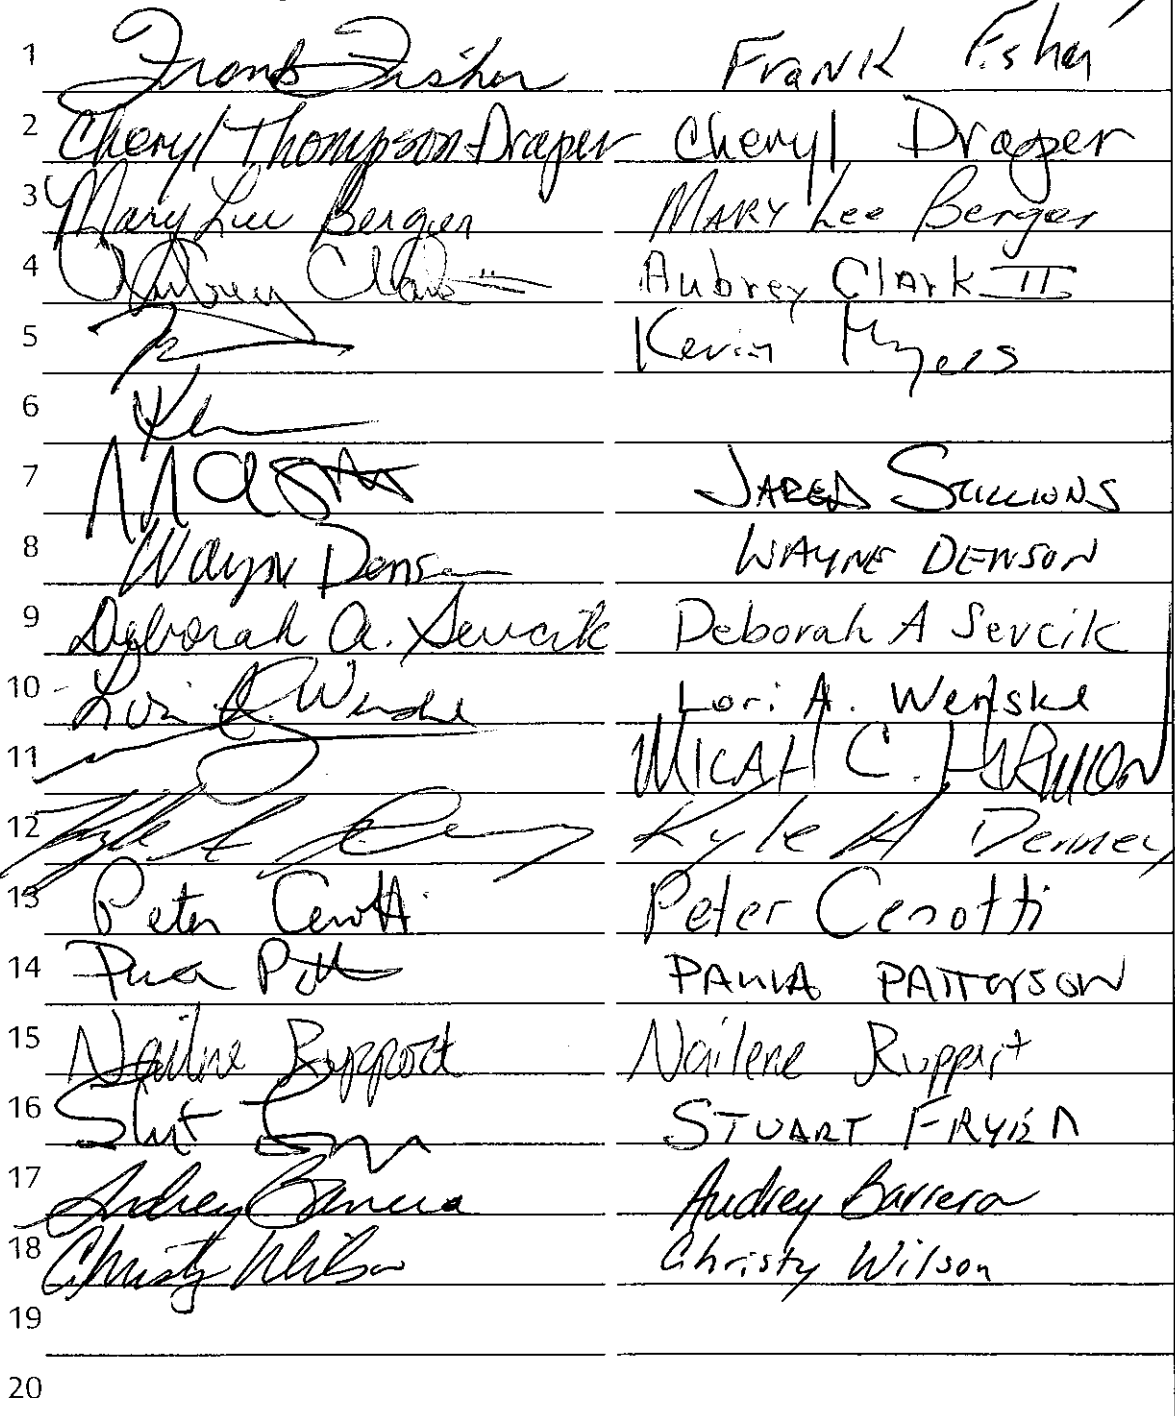 1 Frank Fisher Frank Fisher
2 Cheryl Thompson-Draper Cheryl Draper
3 Mary Lee Berger MARY Lee Berger
4 Aubrey Clark II Aubrey Clark II
5 Kevin Myers
6
7 JARED
8 Wayne Denson WAYNE DENSON
9 Deborah A. Sevcik Deborah A Sevcik
10 Lori A. Wenske Lori A. Wenske
11 MICAH C. HARMON
12 Kyle A Denney
13 Peter Cenotti Peter Cenotti
14 PAULA PATTERSON
15 Nailene Ruppert Nailene Ruppert
16 STUART FRYER
17 Audrey Barrera Audrey Barrera
18 Christy Wilson Christy Wilson
19
20